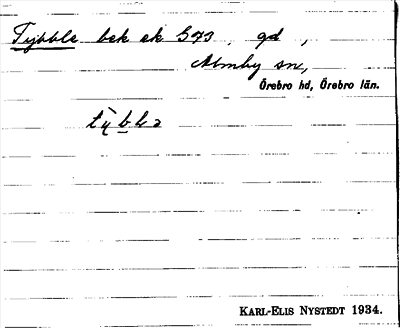 Tybble bek ek 573, gd,
Almby sn,
Örebro hd, Örebro län.
KARL-ELIS NYSTEDT 1934.